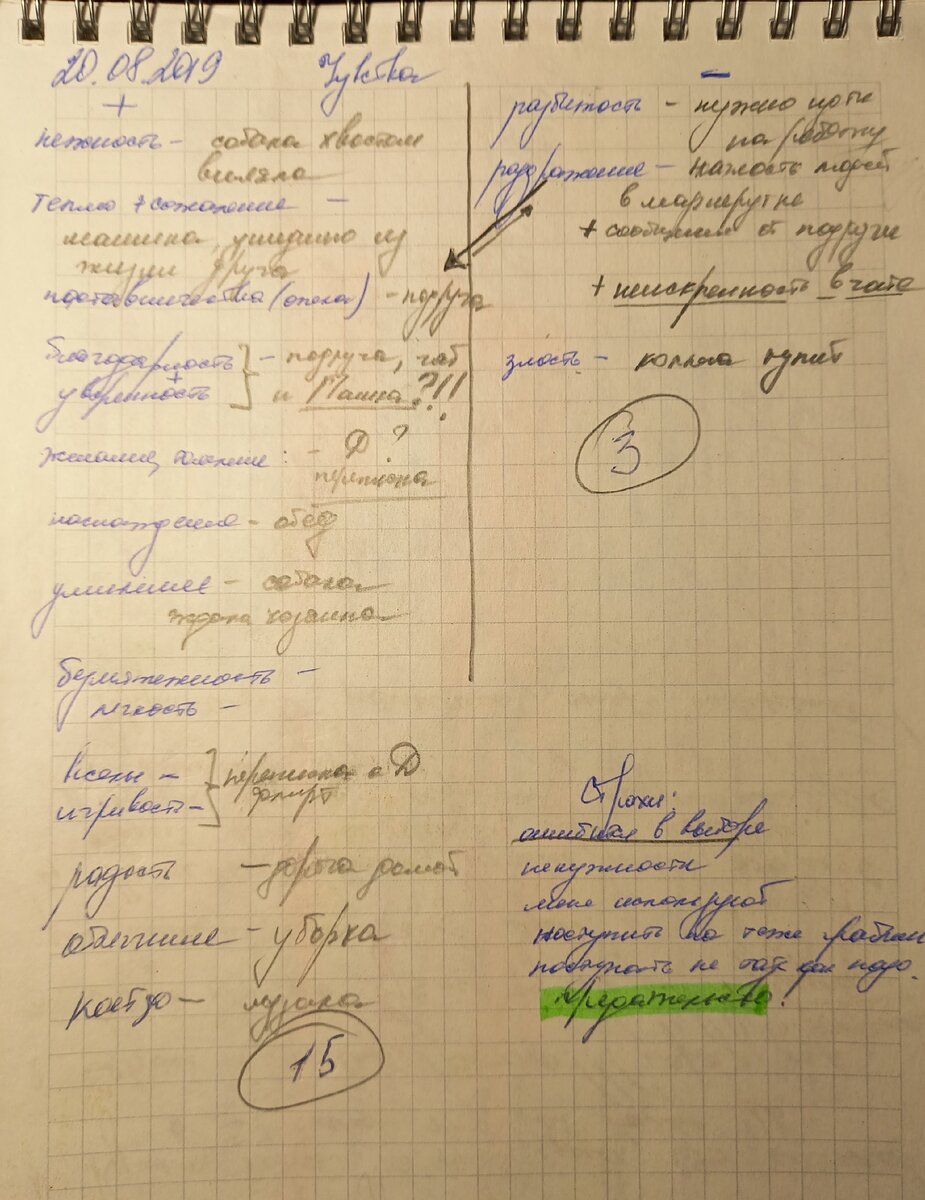 20.08.2019 Чувства
+
нежность - собака хвостом
виляла
тепло + сожаление -
машина, ушедшую из
жизни друга
наставничества (опека) - подруга
благодарность
+
уверенность
- подруга, чат
и Пашка?!!
желание, : - Д?
переписка
наслаждение - обед
умиление - собака
ждала хозяина
безмятежность -
легкость -
игривость -
переписка с Д
флирт
радость - дорога домой
облегчение - уборка
музыка
15
-
разбитость - нужно идти
на работу
раздражение - наглость людей
в маршрутке
+ сообщения от подруги
+ неискренность в чате
злость - коллега тупит
3
Страхи:
ошибиться в выборе
ненужности
меня используют
наступить на теже грабли
поступать не так как надо.
Предательство!